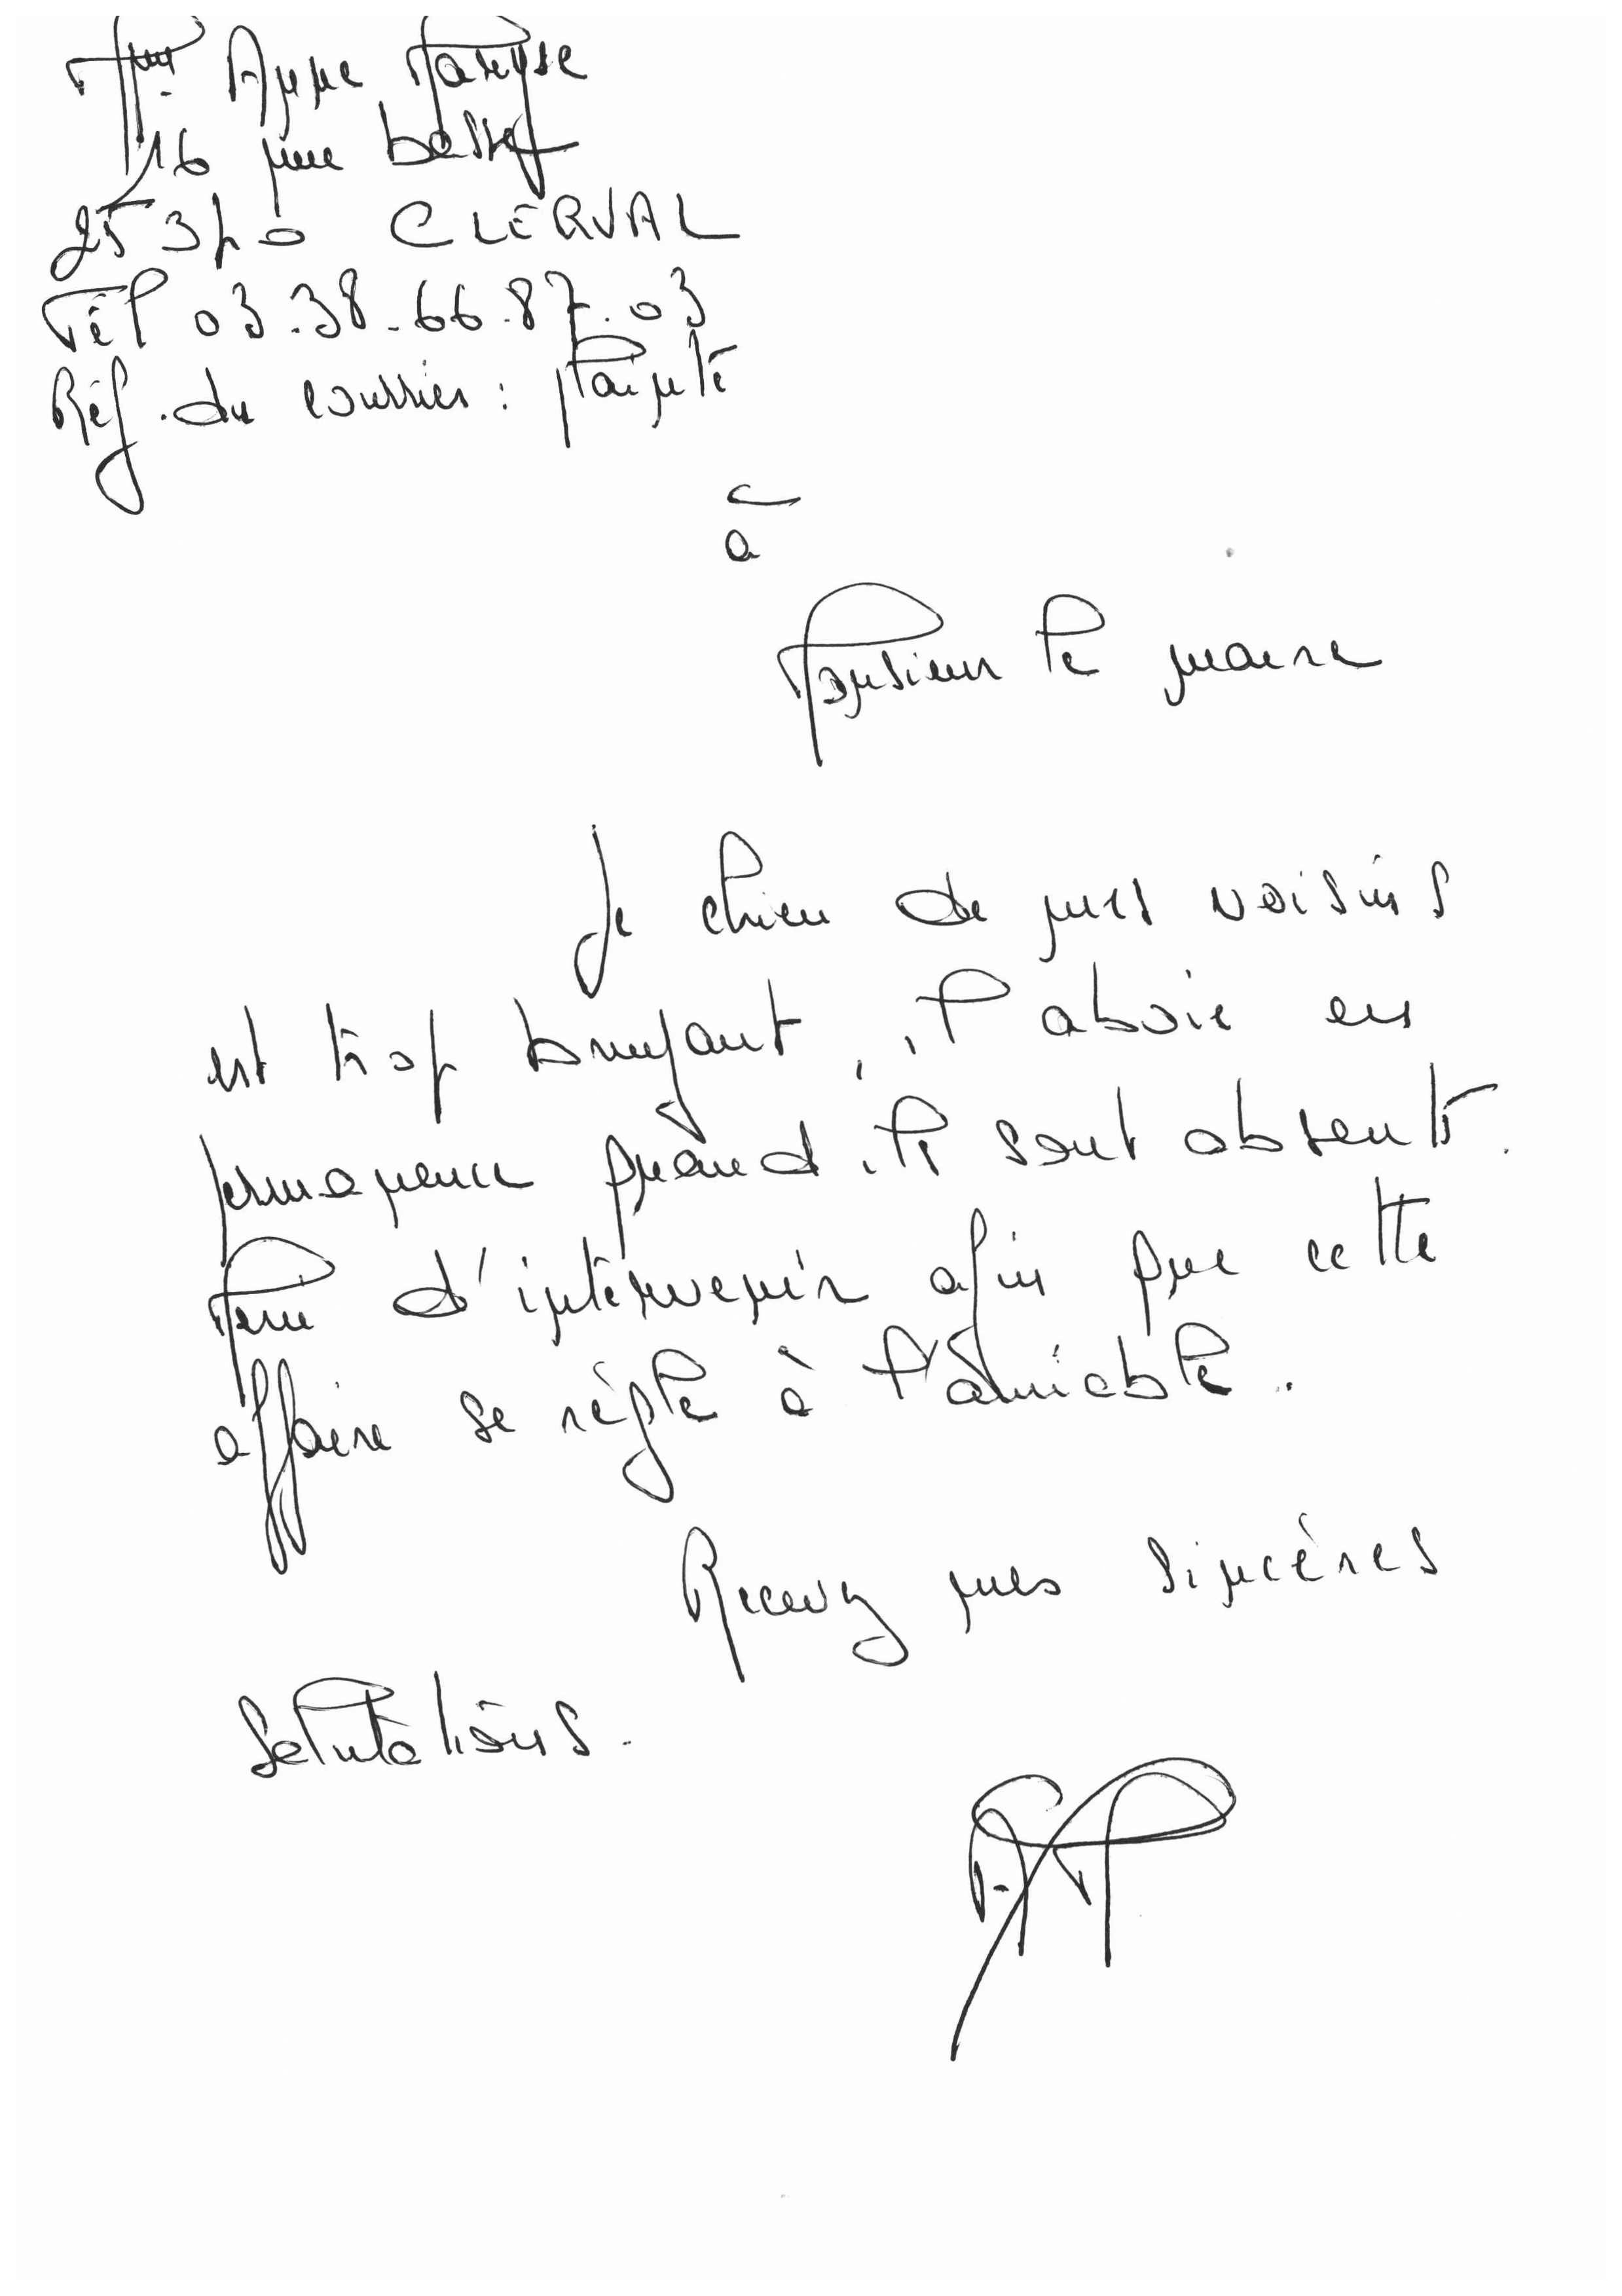 Mme Anne Maryse
16 rue basse
25340 CLERVAL
Tél 03.38.66.87.03
Réf. du courrier: Plainte
à
Monsieur le maire
Le chien de mes voisins
est trop bruyant, il aboie en
permanence quand ils sont absents.
Merci d'intervenir afin que cette
affaire se règle à l'amiable.
Recevez mes sincères
salutations.